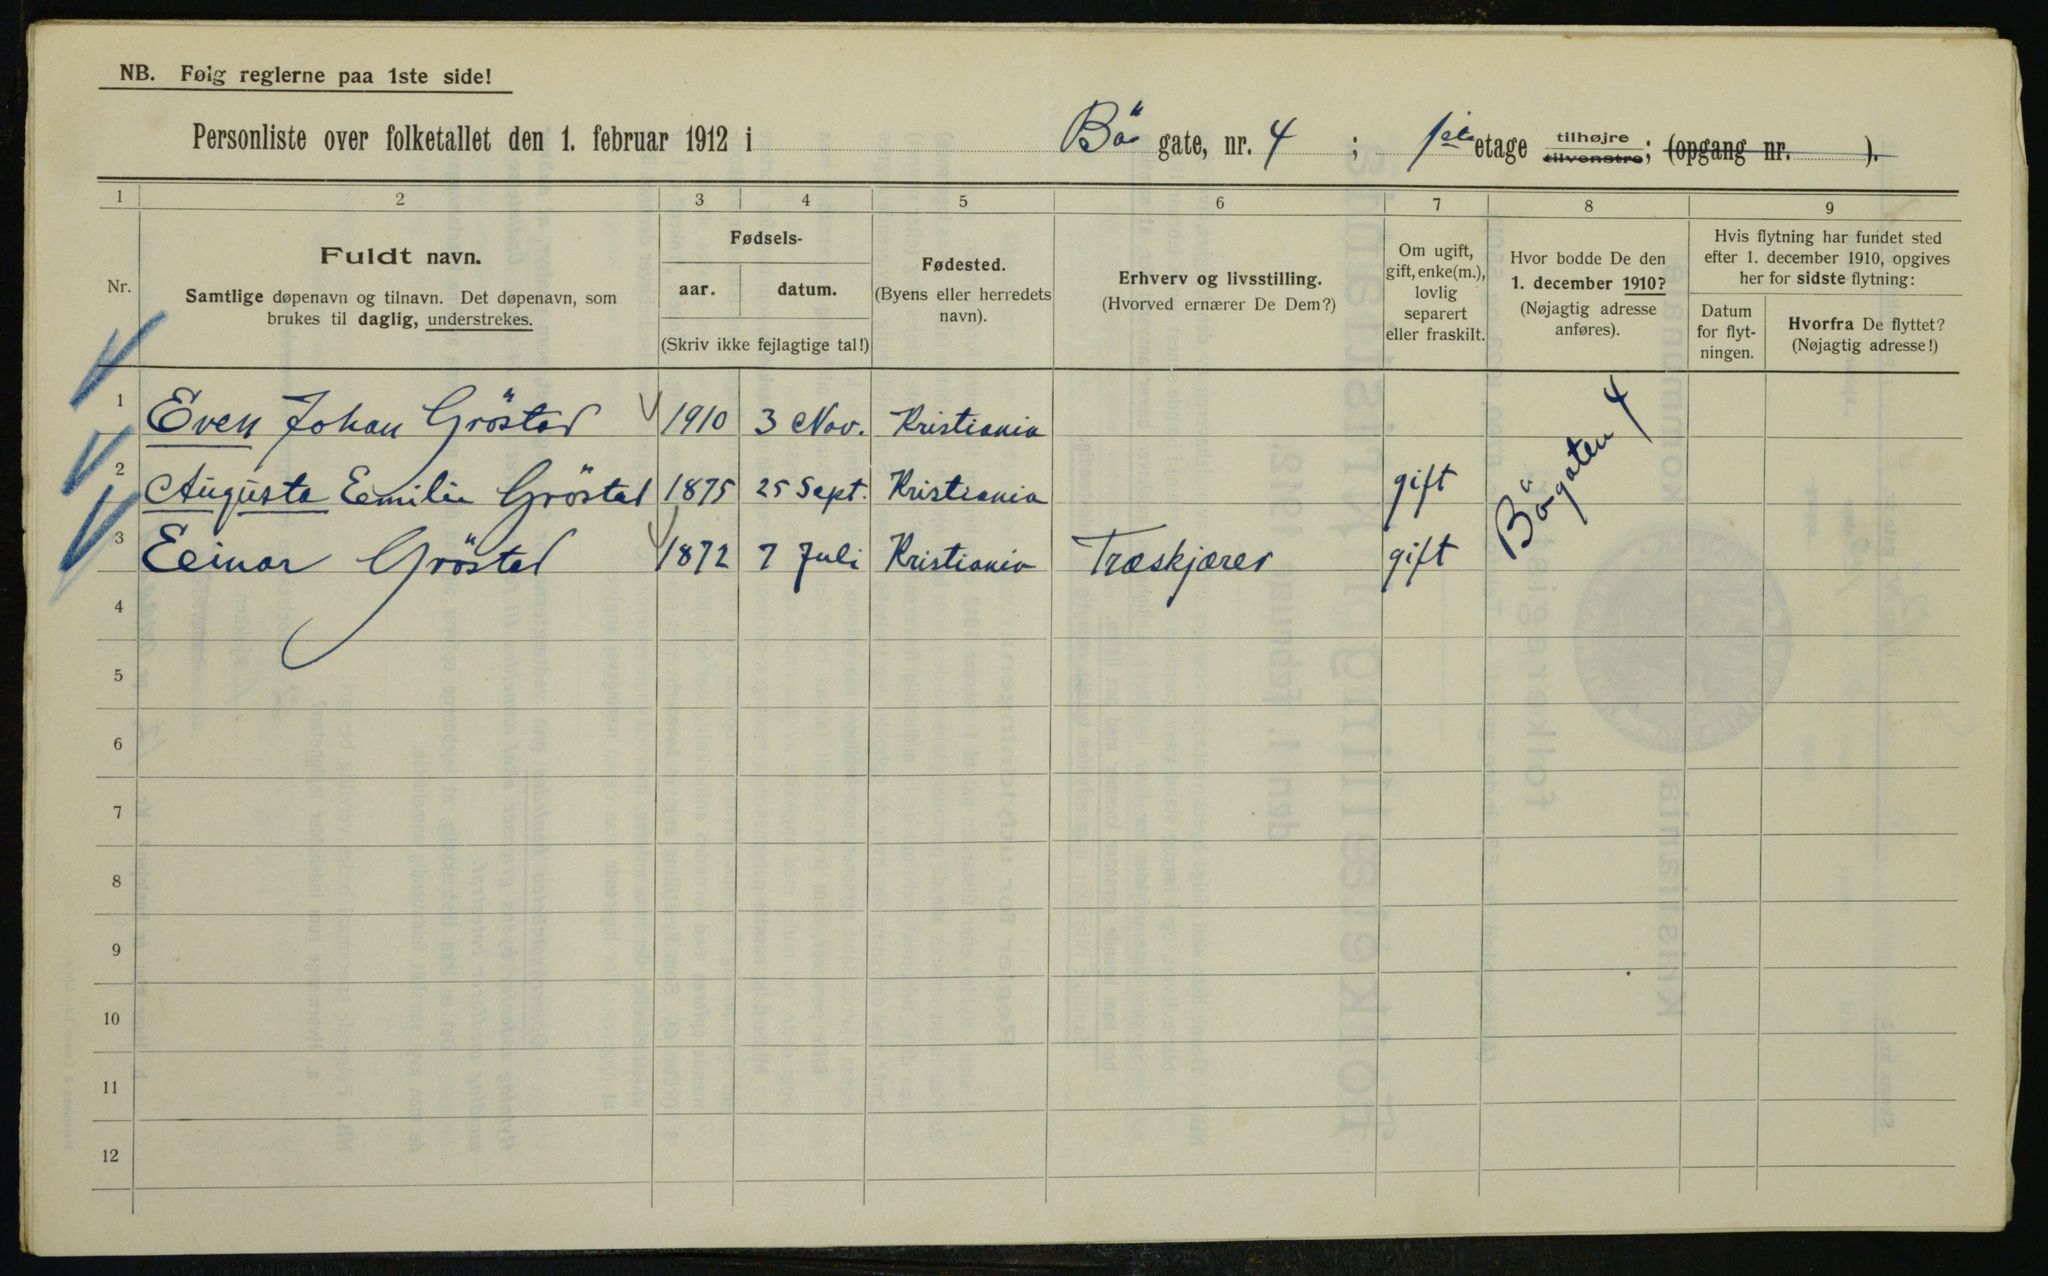 NB. Følg reglerne paa 1ste side!
Personliste over folketallet den 1. februar 1912 i Bö gate, nr. 4 ; 1ste etage tilhøjre tilvenstre; (opgang nr. ).
1 2 3 4 5 6 7 8 9
Nr.
Fuldt navn.
Samtlige døpenavn og tilnavn. Det døpenavn, som
brukes til daglig, understrekes.
Fødsels-
aar. datum.
(Skriv ikke fejlagtige tal!)
Fødested.
(Byens eller herredets
navn).
Erhverv og livsstilling.
(Hvorved ernærer De Dem?)
Om ugift,
gift, enke(m.),
lovlig
separert
eller fraskilt.
Hvor bodde De den
1. december 1910?
(Nøjagtig adresse
anføres).
Hvis flytning har fundet sted
efter 1. december 1910, opgives
her for sidste flytning:
Datum
for flyt-
ningen.
Hvorfra De flyttet?
(Nøjagtig adresse!)
1 Even Johan Gröstad 1910 3 Nov. Kristiania
2 Augusta Emilie Gröstad 1875 25 Sept. Kristiania gift
Bögaten 4
3 Einar Gröstad 1872 7 Juli Kristiania Træskjærer gift
4
5
6
7
8
9
10
11
12